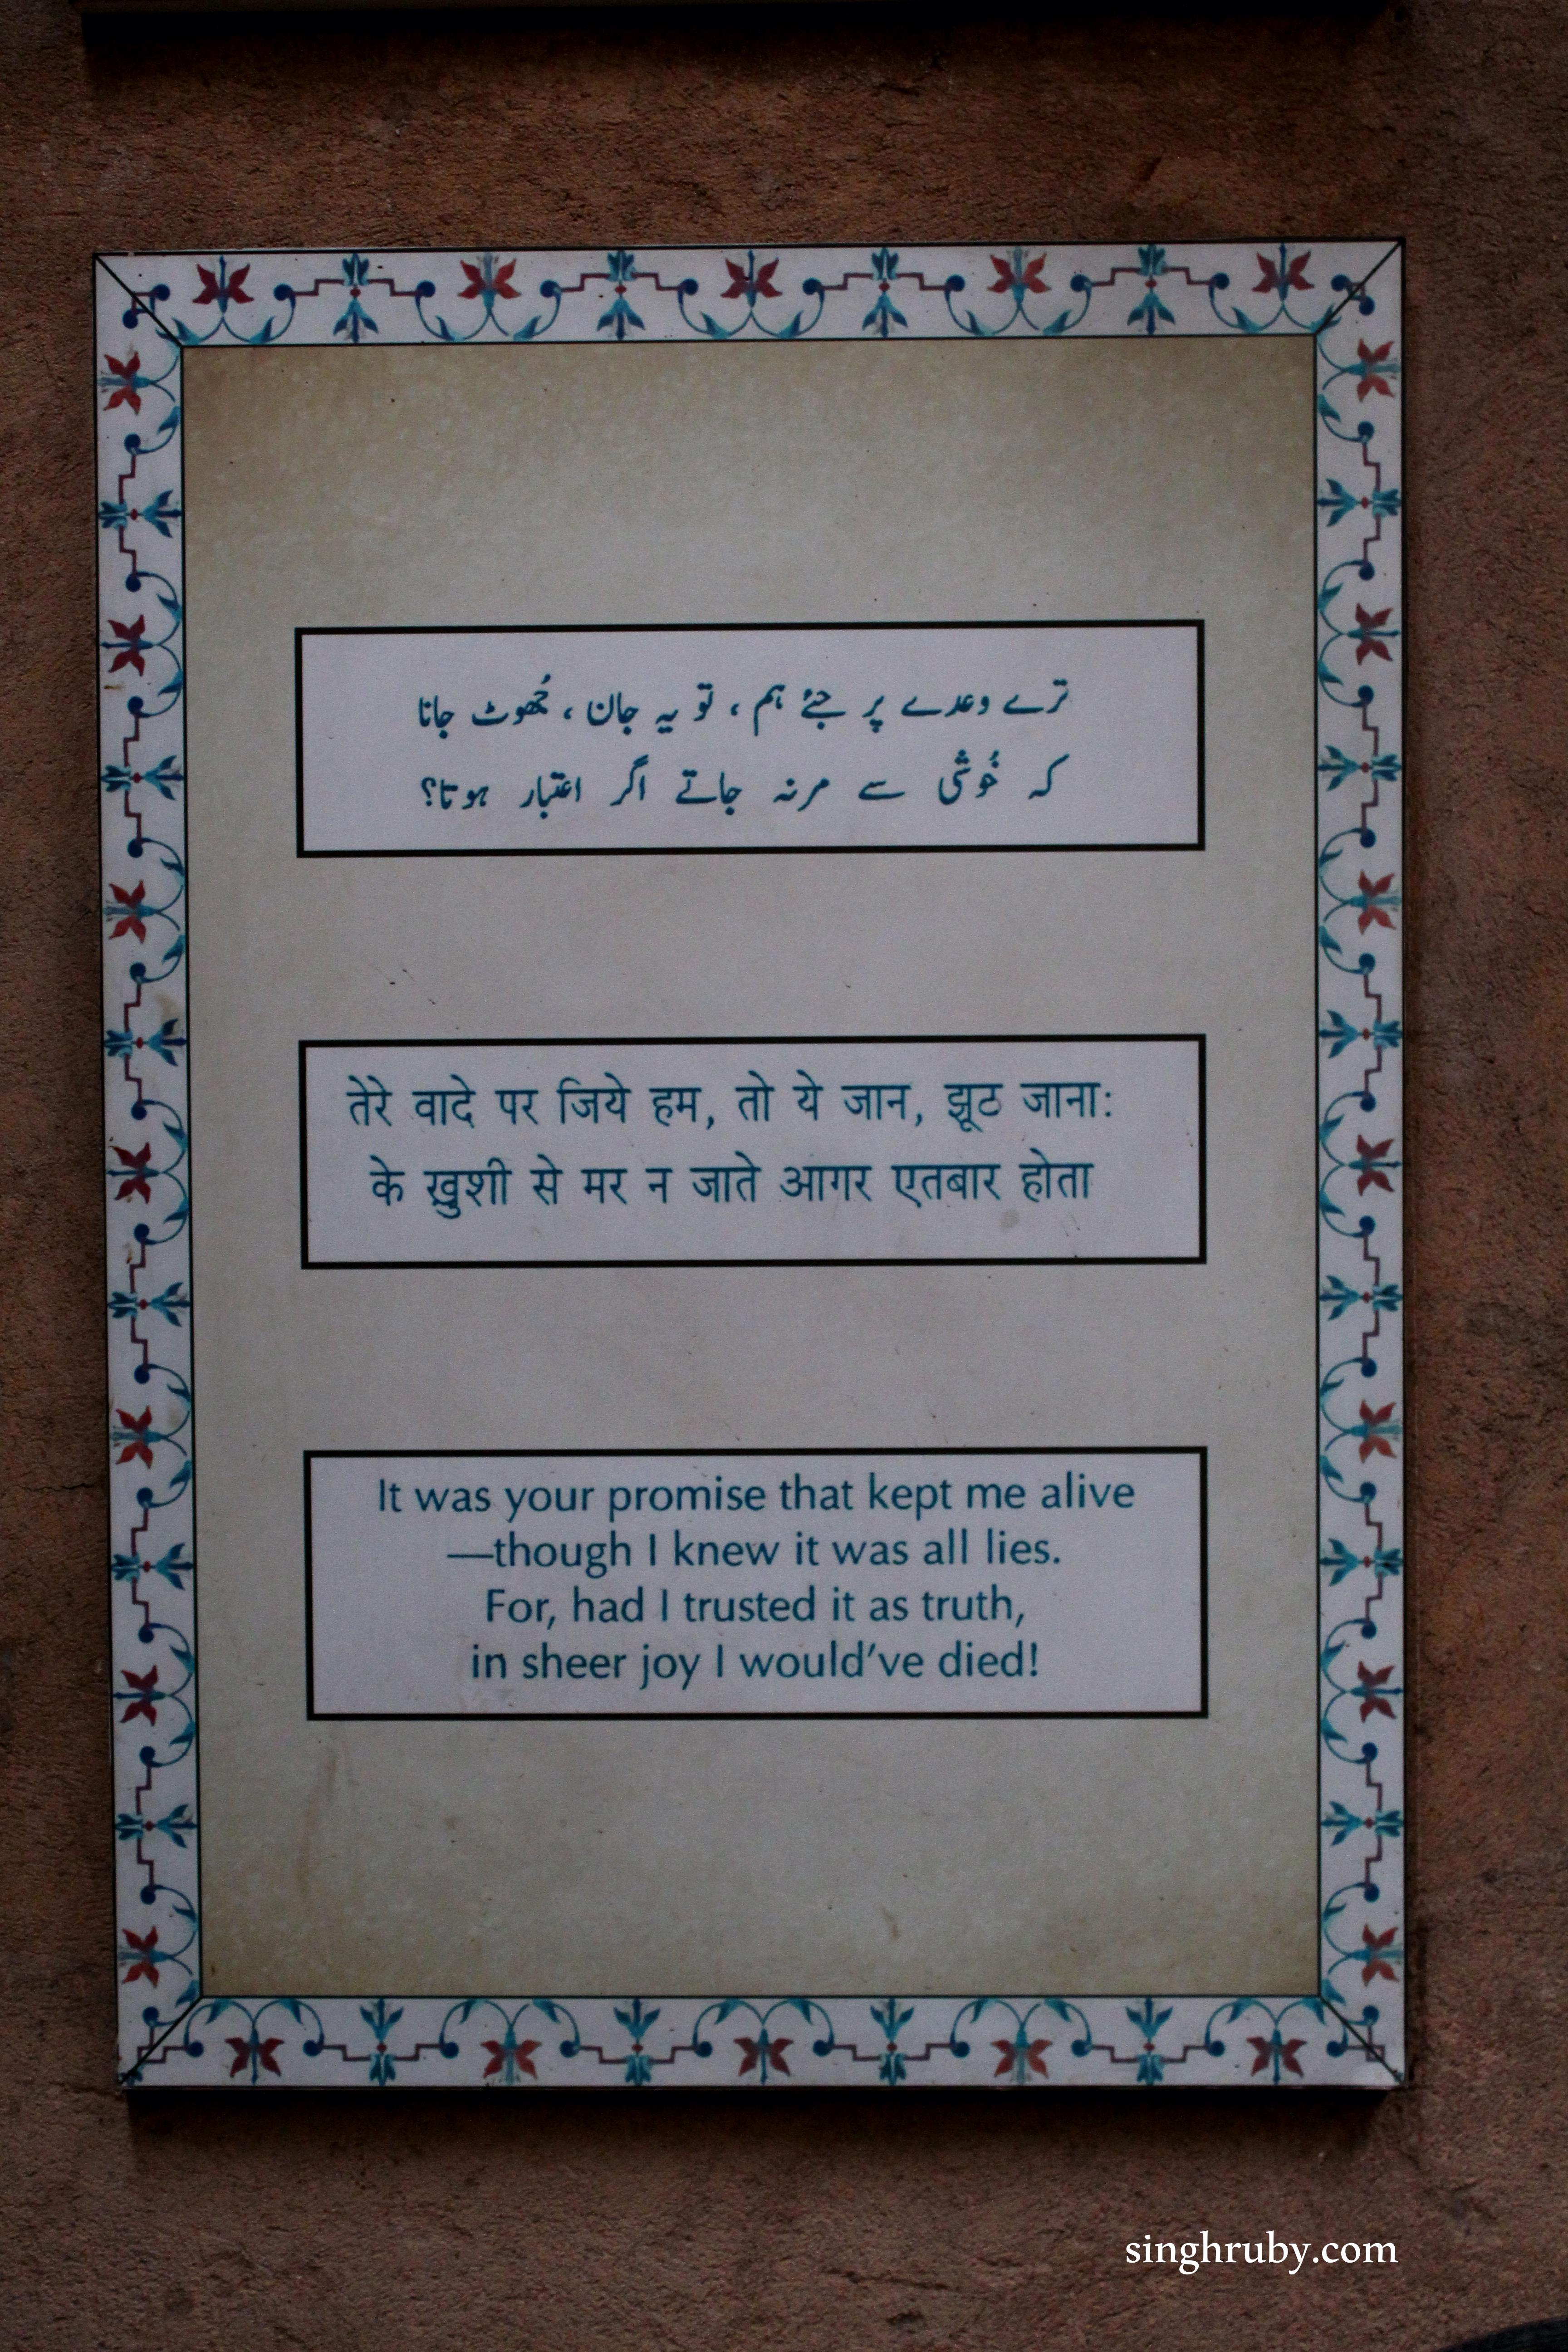 ترے وعدے پر جئے ہم، تو یہ جان، جُھوٹ جانا
کہ خُوشی سے مرنہ جاتے اگر اعتبار ہوتا؟
तेरे वादे पर जिये हम, तो ये जान, झूठ जाना:
के ख़ुशी से मर न जाते आगर एतबार होता
It was your promise that kept me alive
—though I knew it was all lies.
For, had I trusted it as truth,
in sheer joy I would've died!
singhruby.com